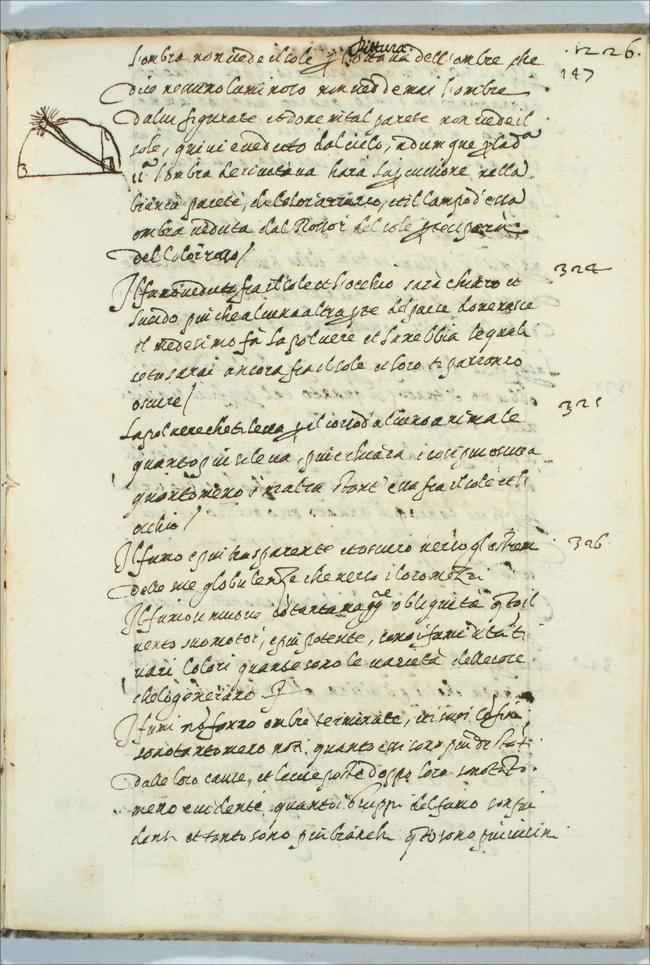 Pittura
226.
147
l'ombra non vede il sole dell'ombre che
dico nessun luminoso non vedde mai l'ombre
da lui figurate et dove tal parete non vede il
sole, quivi è veduto dal cielo, adunque
l'ombra derivativa harà la percussione nella
bianca parete, di color azzurro, et il campo d'essa
ombra veduta dal del sole
del color rosso /
3
324
Il fumo veduto fra il sole et l'occhio sarà chiaro et
lucido più che alcuna altra parte del paese dove nasce
il medesimo fà la polvere et la nebbia le quali
se tu sarai ancora fra il sole et loro ti parranno
oscure /
325
La polvere che si leva il corso d'alcuno animale
quanto più si leva, più è chiara è così più oscura
quanto meno s'inalza stante essa fra il sole et l'
occhio /
326.
Il fumo è più trasparente et oscuro verso gli stremi
delle sue globulenze che verso i loro mezzi
Il fumo si muove con tanta obliquità qto il
vento suo motor, è più potente, sono i fumi di tāti
vari colori quante sono le varietà delle cose
che lo generano.
I fumi nō fanno ombre terminate, et i suoi cōfini
sono tanto meno noti quanto essi sono più distāti
dalle loro cause, et le cose poste doppo loro sono tāto
meno evidenti quanto i gruppi del fumo son più
densi et tanto sono più bianchi qto sono più vicin